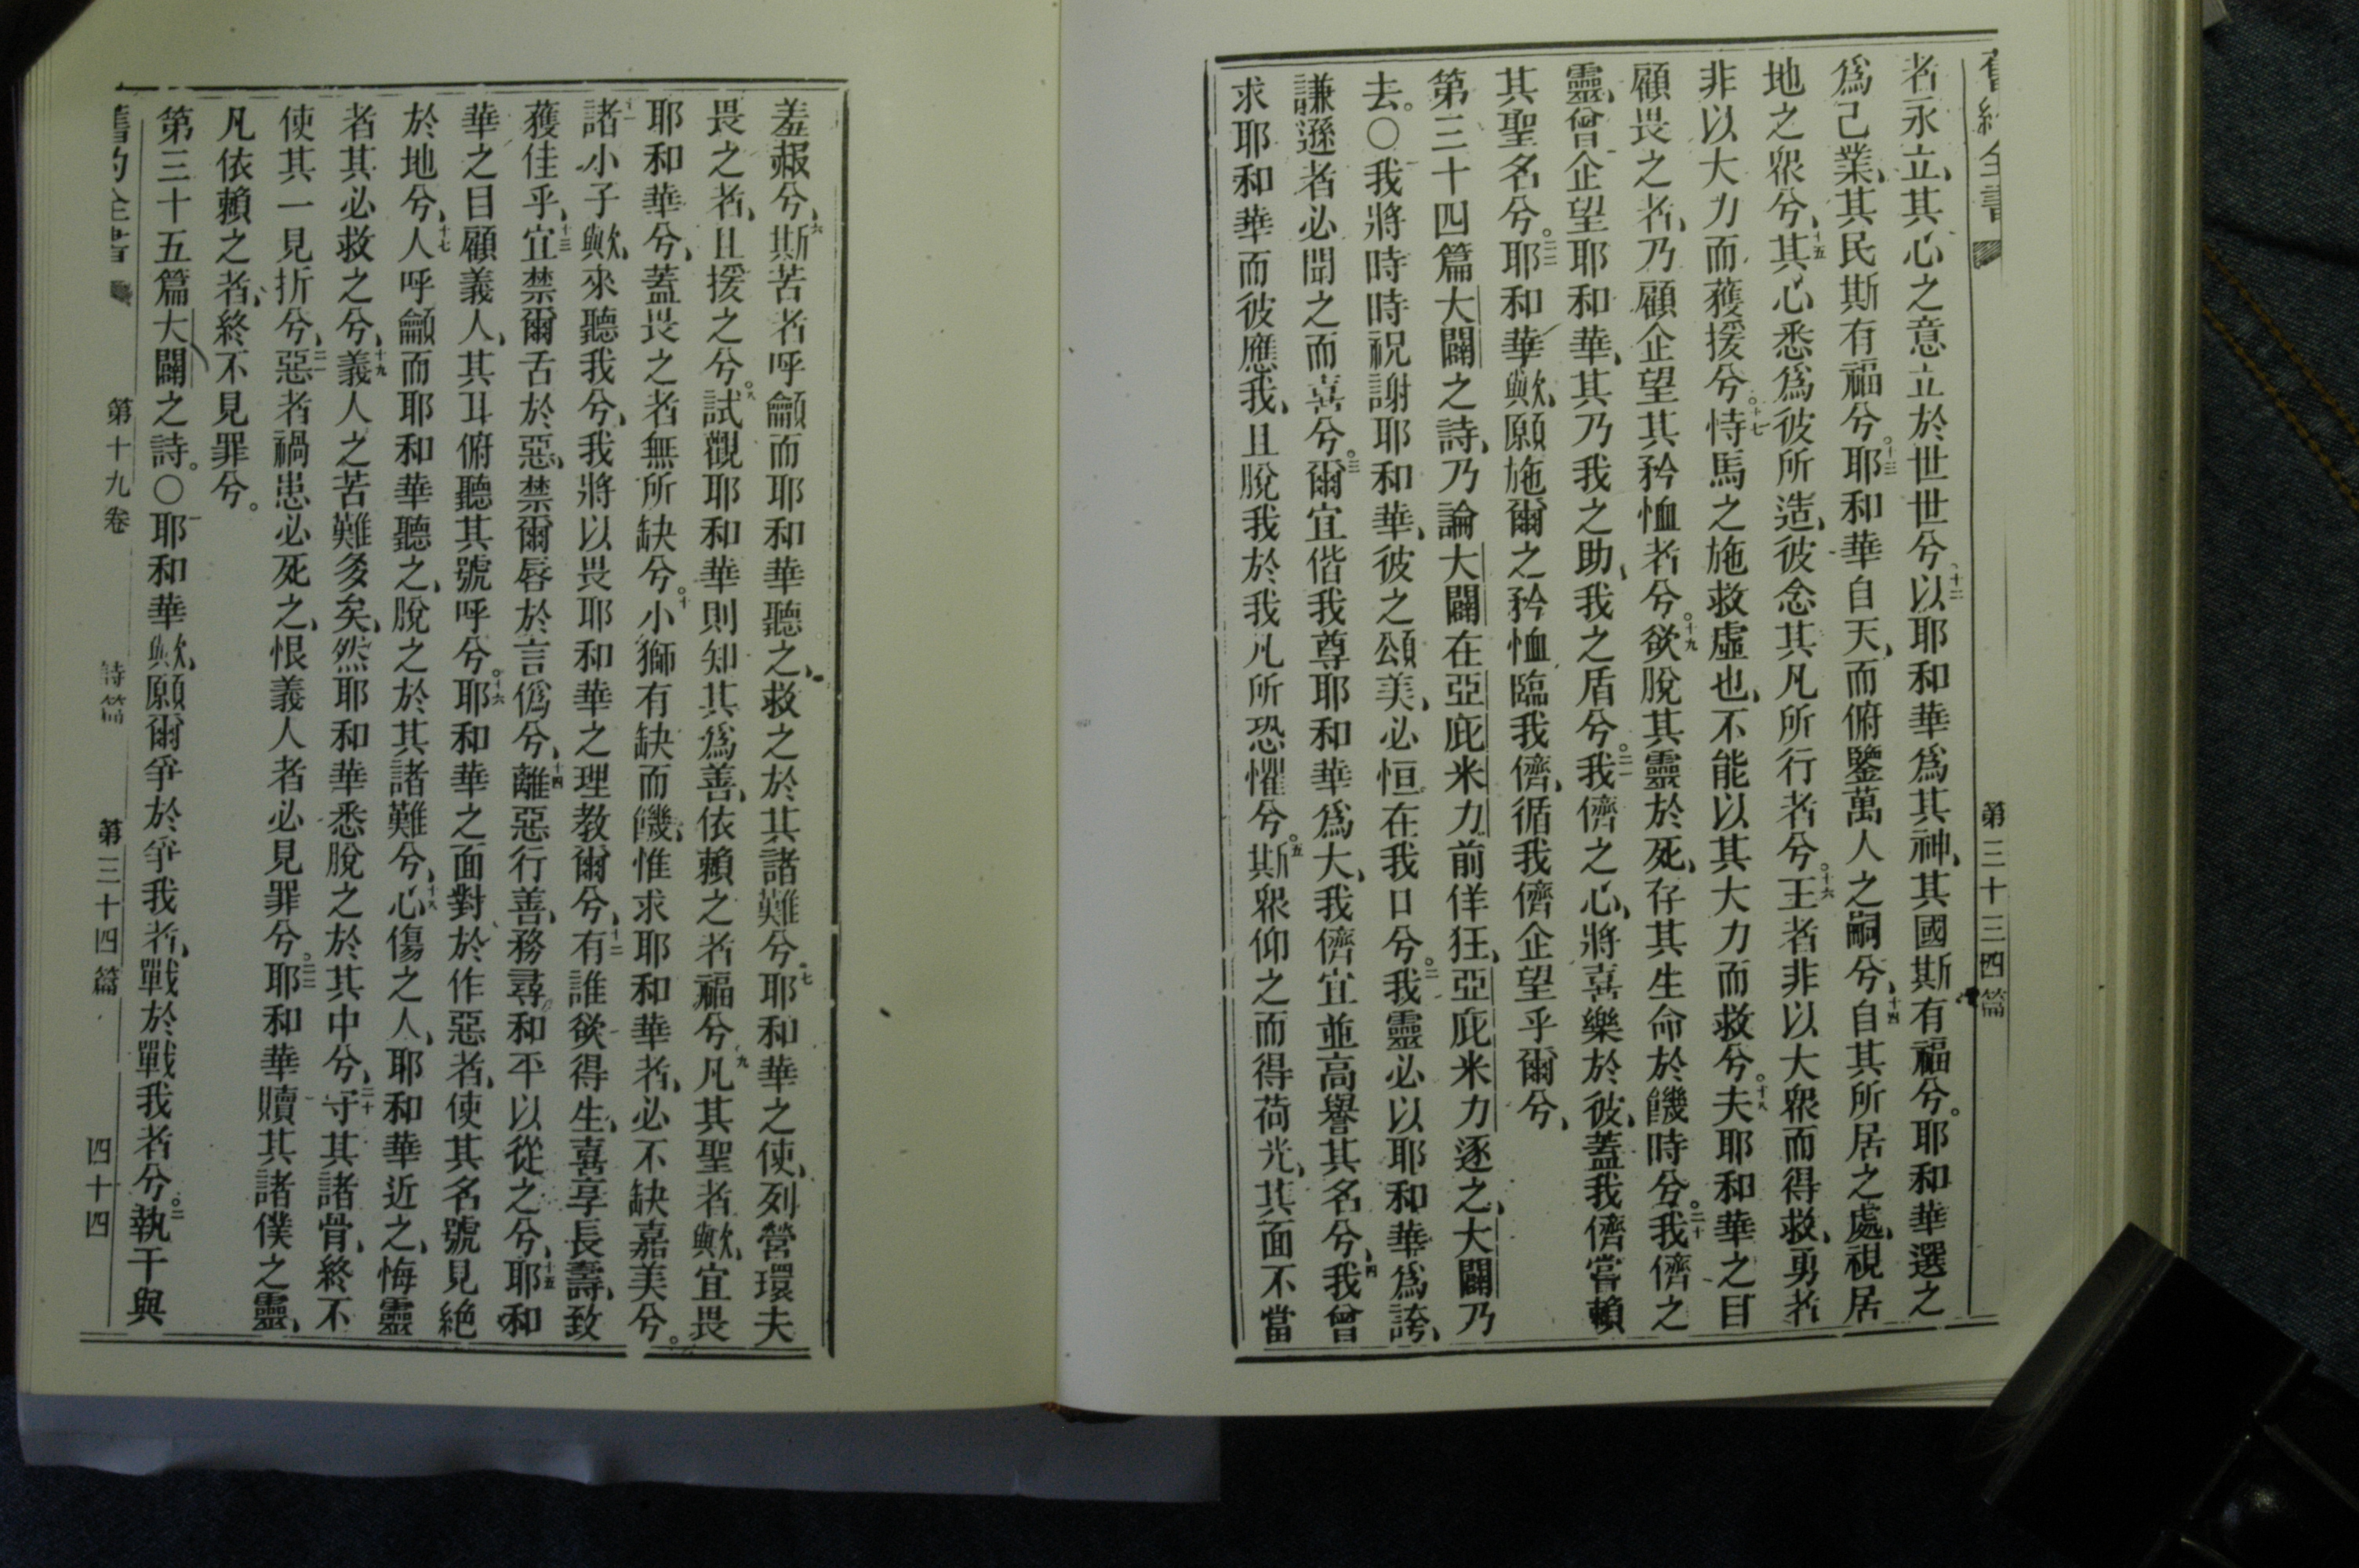 舊約全書 第三十三四篇
者永立、其心之意立於世世兮、十二以耶和華爲其神、其國斯有福兮。耶和華選之
爲己業、其民斯有福兮。十三耶和華自天、而俯鑒萬人之嗣兮、十四自其所居之處、視居
地之衆兮、十五其心悉爲彼所造、彼念其凡所行者兮。十六王者非以大衆而得救、勇者
非以大力而獲援兮。十七恃馬之施救虛也、不能以其大力而救兮。十八夫耶和華之目
顧畏之者、乃顧企望其矜恤者兮。十九欲脫其靈於死、存其生命於饑時兮。二十我儕之
靈、曾企望耶和華、其乃我之助、我之盾兮。二一我儕之心、將喜樂於彼、蓋我儕嘗賴
其聖名兮。二二耶和華歟、願施爾之矜恤臨我儕、循我儕企望乎爾兮、
第三十四篇大闢之詩、乃論大闢在亞庇米力前佯狂、亞庇米力逐之、大闢乃
去。〇一我將時時祝謝耶和華、彼之頌美、必恒在我口兮。二我靈必以耶和華爲誇、
謙遜者必聞之而喜兮。三爾宜偕我尊耶和華爲大、我儕宜並高譽其名兮、四我曾
求耶和華而彼應我、且脫我於我凡所恐懼兮。五斯衆仰之而得荷光、其面不當
羞赧兮、六斯苦者呼龥而耶和華聽之、救之於其諸難兮。七耶和華之使、列營環夫
畏之者、且援之兮。八試觀耶和華則知其爲善、依賴之者福兮、九凡其聖者歟、宜畏
耶和華兮、蓋畏之者無所缺兮。十小獅有缺而饑、惟求耶和華者、必不缺嘉美兮。
十一諸小子歟、來聽我兮、我將以畏耶和華之理教爾兮、十二有誰欲得生、喜享長壽、致
獲佳乎、十三宜禁爾舌於惡、禁爾唇於言僞兮、十四離惡行善、務尋和平以從之兮、十五耶和
華之目顧義人、其耳俯聽其號呼兮。十六耶和華之面對於作惡者、使其名號見絕
於地兮、十七人呼龥而耶和華聽之、脫之於其諸難兮、十八心傷之人、耶和華近之、悔靈
者其必救之兮、十九義人之苦難多矣、然耶和華悉脫之於其中兮、二十守其諸骨、終不
使其一見折兮、二一惡者禍患必死之、恨義人者必見罪兮。二二耶和華贖其諸僕之靈、
凡依賴之者、終不見罪兮。
第三十五篇大闢之詩。〇一耶和華歟、願爾爭於爭我者、戰於戰我者兮。二執干與
舊約全書 第十九卷 詩篇 第三十四篇 四十四